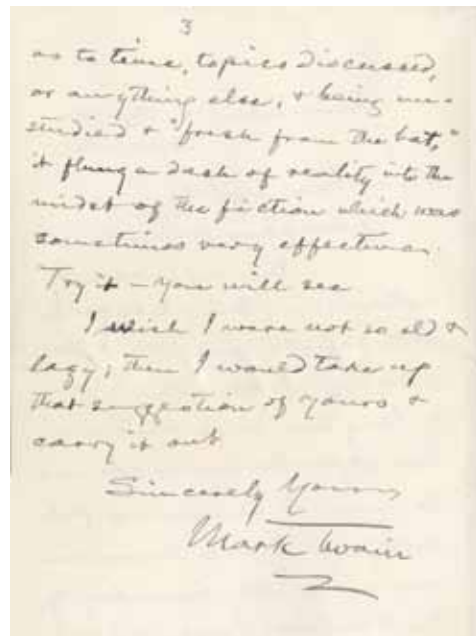 3
as to time, topics discussed,
or anything else, & being un-
studied & "fresh from the bat,"
it flung a dash of reality into the
midst of the fiction which was
sometimes very effective.
Try it – you will see.
I wish I were not so old &
lazy; then I would take up
that suggestion of yours &
carry it out.
Sincerely Yours
Mark Twain